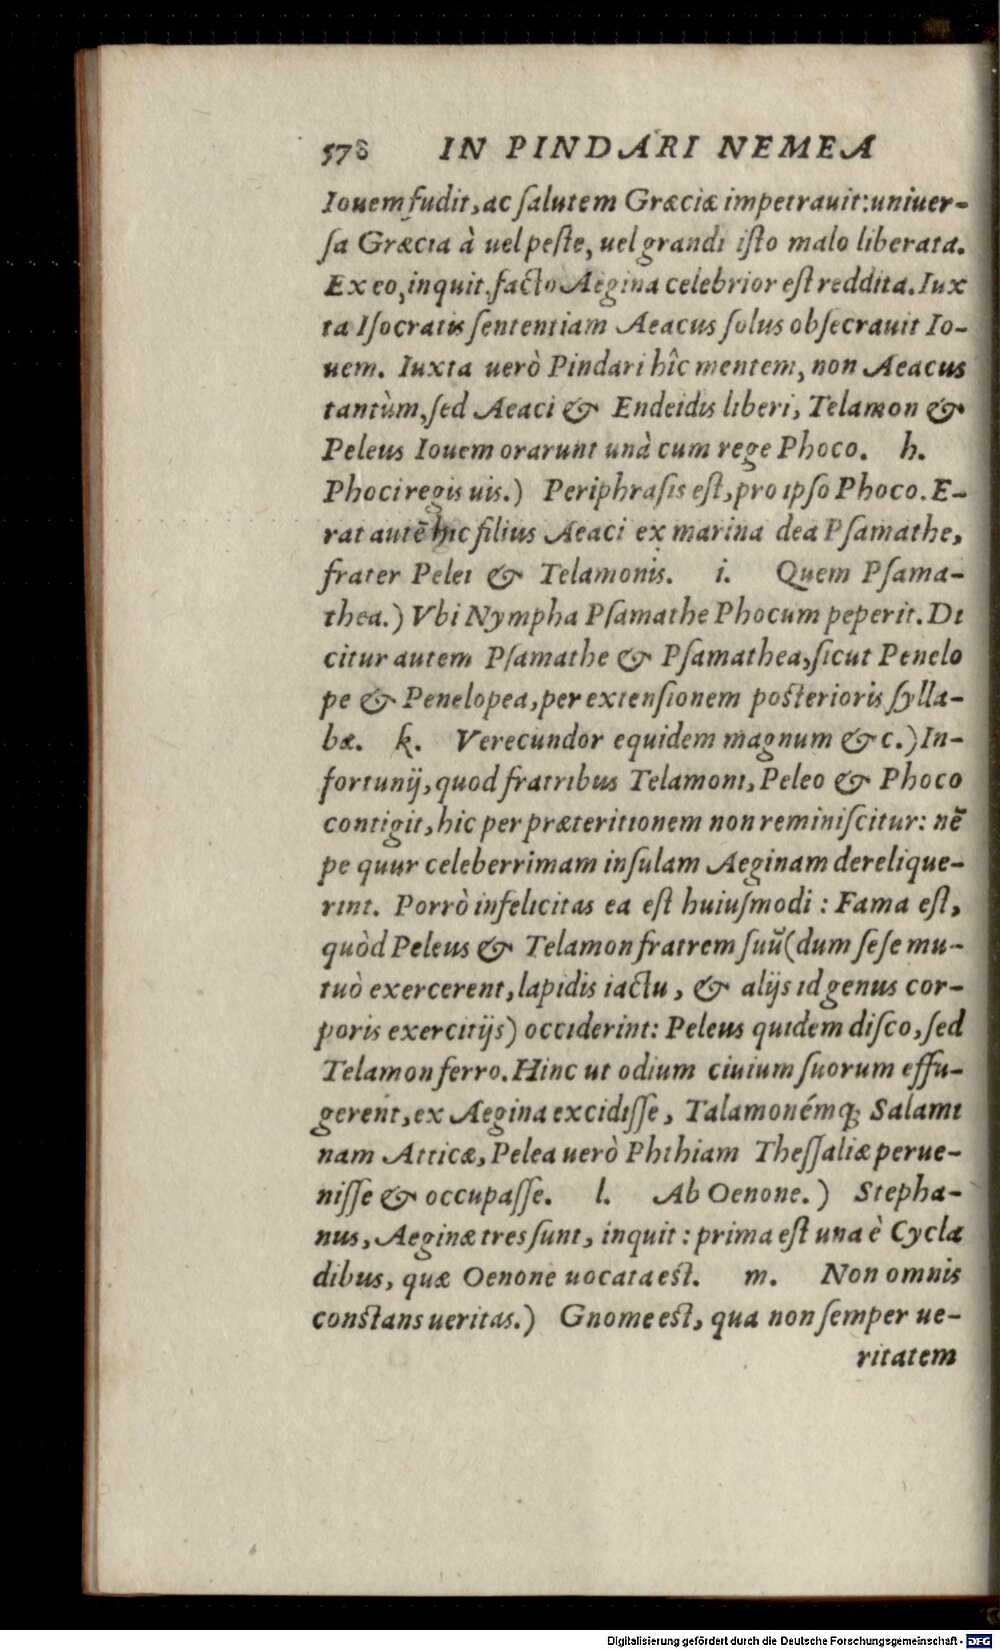 578 IN PINDARI NEMEA
Iouem fudit, ac ſalutem Græciæ impetrauit: uniuer-
ſa Græcia à uel peſte, uel grandi iſto malo liberata.
Ex eo, inquit, facto Aegina celebrior eſt reddita. Iux
ta Iſocratis ſententiam Aeacus ſolus obſecrauit Io-
uem. Iuxta uerò Pindari hîc mentem, non Aeacus
tantùm, ſed Aeaci & Endeidis liberi, Telamon &
Peleus Iouem orarunt unà cum rege Phoco. h.
Phoci regis uis.) Periphraſis eſt, pro ipſo Phoco. E-
rat autē hic filius Aeaci ex marina dea Pſamathe,
frater Pelei & Telamonis. i. Quem Pſama-
thea.) Vbi Nympha Pſamathe Phocum peperit. Di
citur autem Pſamathe & Pſamathea, ſicut Penelo
pe & Penelopea, per extenſionem poſterioris ſylla-
bæ. k. Verecundor equidem magnum & c.) In-
fortunij, quod fratribus Telamoni, Peleo & Phoco
contigit, hic per præteritionem non reminiſcitur: nē
pe quur celeberrimam inſulam Aeginam derelique-
rint. Porrò infelicitas ea eſt huiuſmodi : Fama eſt,
quòd Peleus & Telamon fratrem ſuū (dum ſeſe mu-
tuò exercerent, lapidis iactu, & alijs id genus cor-
poris exercitijs) occiderint: Peleus quidem diſco, ſed
Telamon ferro. Hinc ut odium ciuium ſuorum effu-
gerent, ex Aegina excidiſſe, Talamonémq; Salami
nam Atticæ, Pelea uerò Phthiam Theſſaliæ perue-
niſſe & occupaſſe. l. Ab Oenone.) Stepha-
nus, Aeginæ tres ſunt, inquit : prima eſt una è Cycla
dibus, quæ Oenone uocata eſt. m. Non omnis
conſtans ueritas.) Gnome eſt, qua non ſemper ue-
ritatem
Digitalisierung gefördert durch die Deutsche Forschungsgemeinschaft - DFG